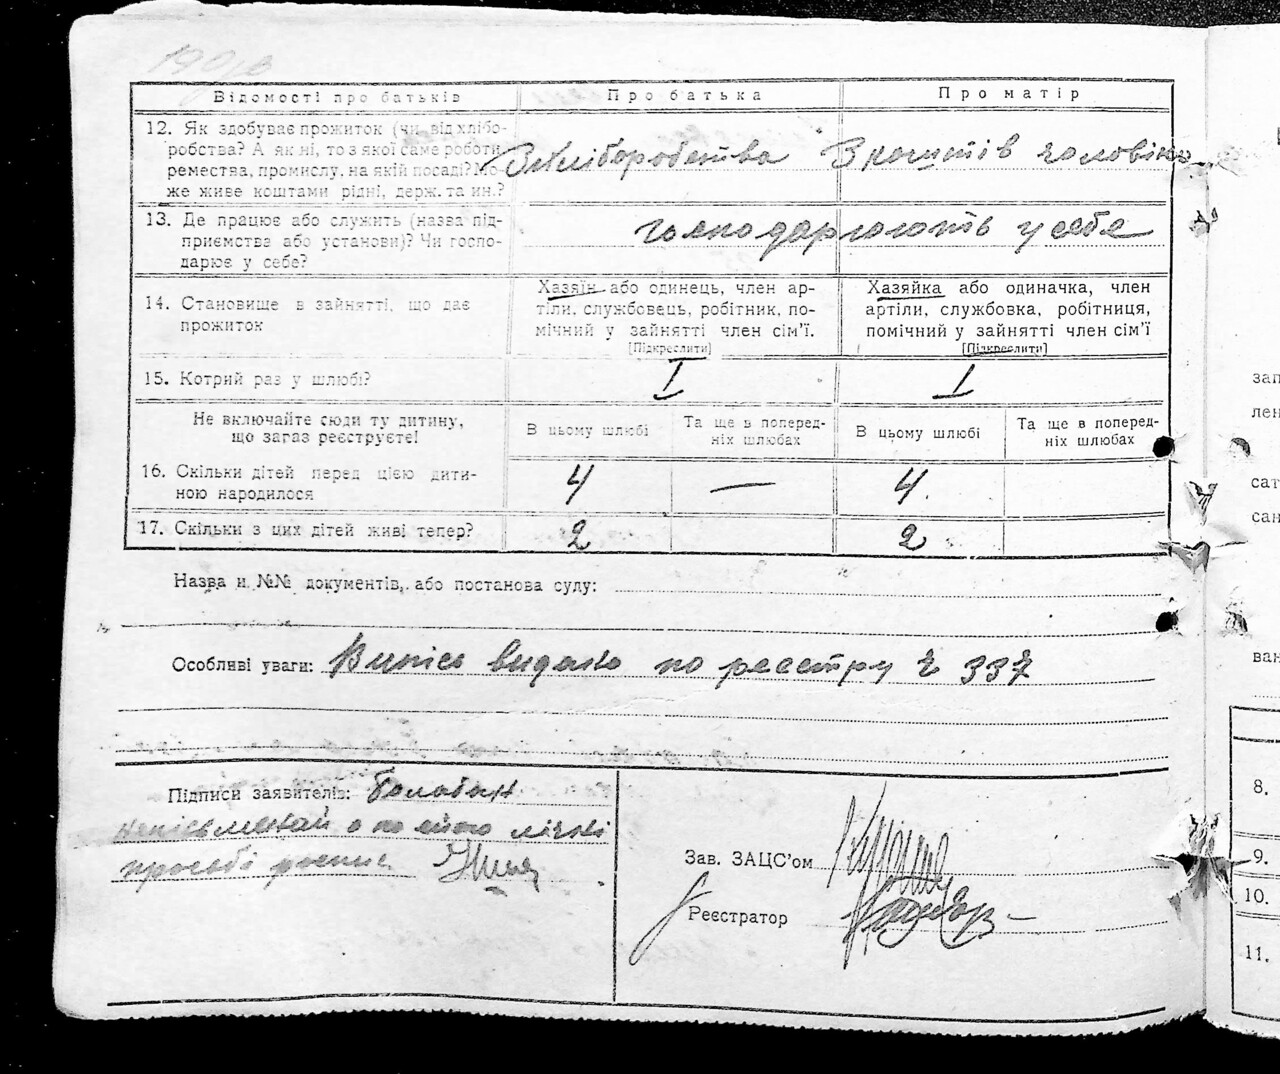 Відомості про батьків Про батька Про матір
12. Як здобуває прожиток (чи від хлібо-
робства? А як ні, то з якої саме роботи,
ремества, промислу, на якій посаді? Мо-
же живе коштами рідні, держ. та ин.?
З хліборобства З коштів чоловіка
13. Де працює або служить (назва під-
приємства або установи)? Чи госпо-
дарює у себе?
господарюють у себе
14. Становище в зайнятті, що дає
прожиток
Хазяїн або одинець, член ар-
тілі, службовець, робітник, по-
мічний у зайнятті член сім'ї.
[Підкреслити]
Хазяйка або одиначка, член
артілі, службовка, робітниця,
помічний у зайнятті член сім'ї
[Підкреслити]
15. Котрий раз у шлюбі? I I
Не включайте сюди ту дитину,
що зараз реєструєте!
В цьому шлюбі
Та ще в поперед-
ніх шлюбах
В цьому шлюбі
Та ще в поперед-
ніх шлюбах
16. Скільки дітей перед цією дити-
ною народилося
4 — 4
17. Скільки з цих дітей живі тепер? 2 2
Назва и №№ документів, або постанова суду:
Особливі уваги: Випись видано по реєстру № 337
Підписи заявителів: Балабан
просьбі
Зав. ЗАЦС'ом
Реєстратор
зап
лен
сат
сан
ван
8.
9.
10.
11.